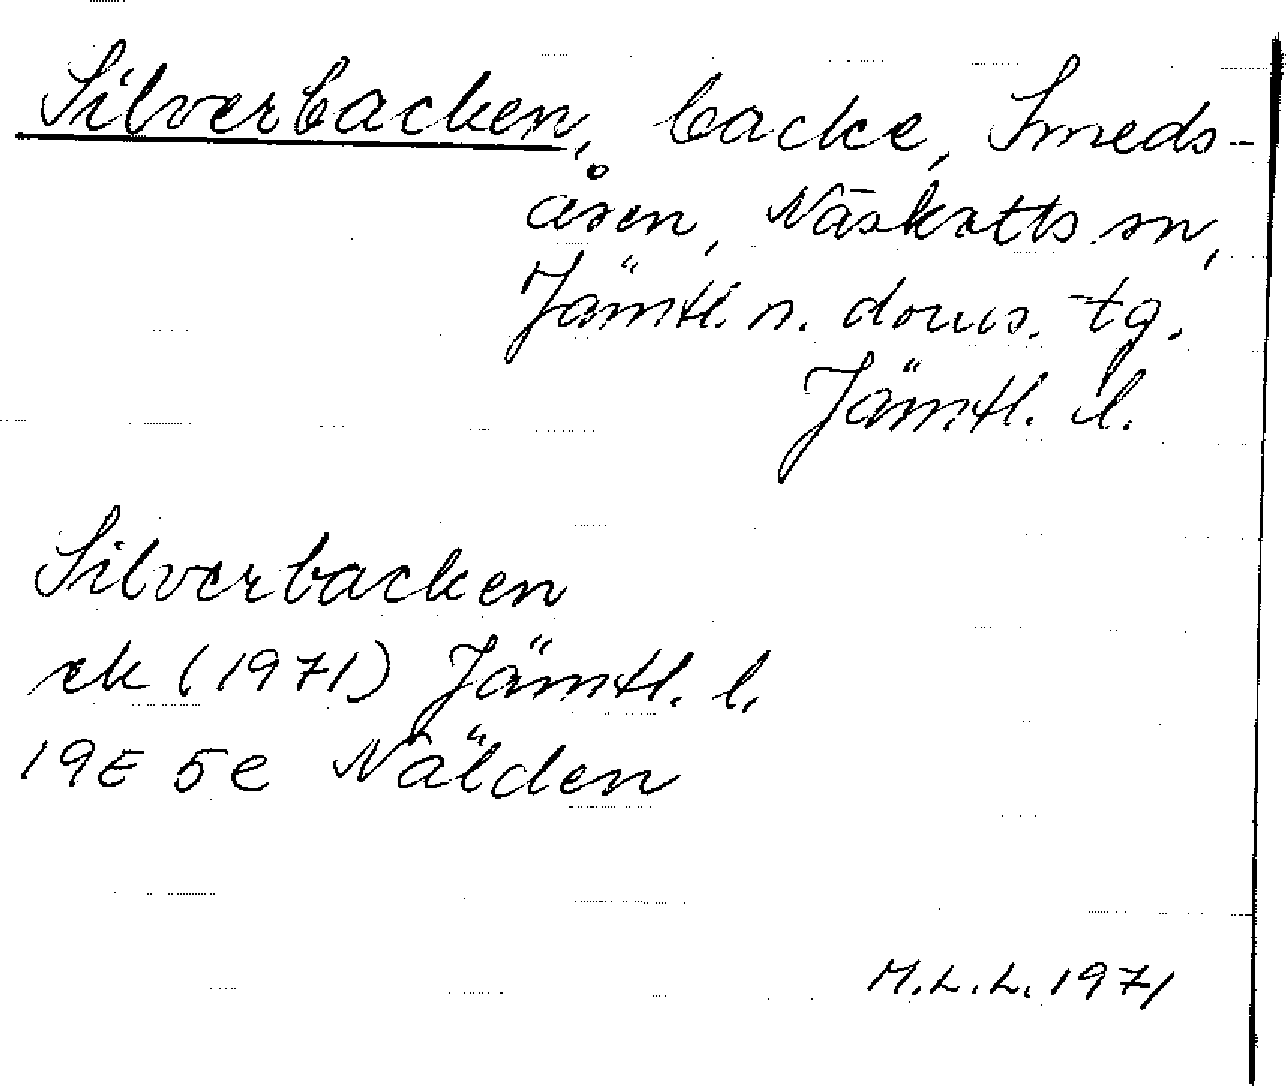 Silverbacken, backe, Smeds-
åsen, Näskotts sn,
Jämtl. n. doms. tg.
Jämtl. l.
Silverbacken
ek (1971) Jämtl. l.
19E 5e Nälden
M.L.L. 1971